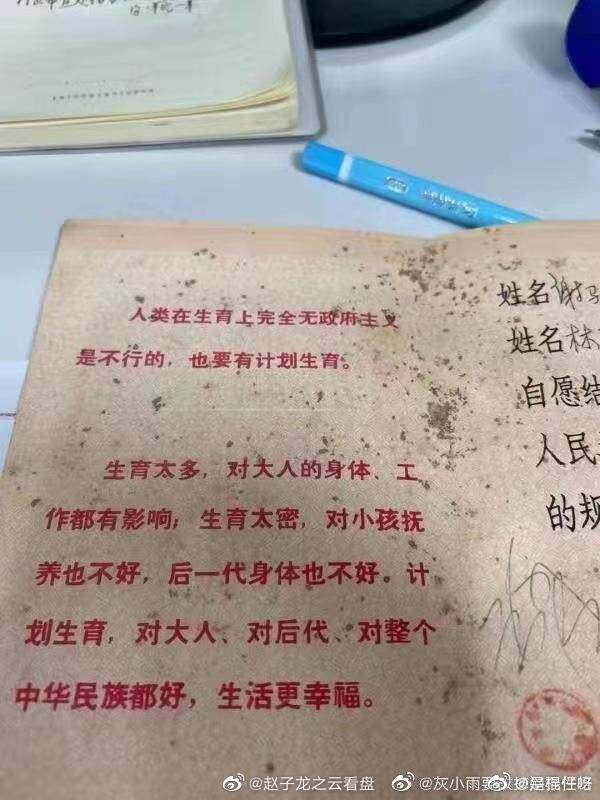 人类在生育上完全无政府主义
是不行的，也要有计划生育。
生育太多，对大人的身体、工
作都有影响；生育太密，对小孩抚
养也不好，后一代身体也不好。计
划生育，对大人、对后代、对整个
中华民族都好，生活更幸福。
姓名谢
姓名林
自愿结
人民
的规
@赵子龙之云看盘
@灰小雨